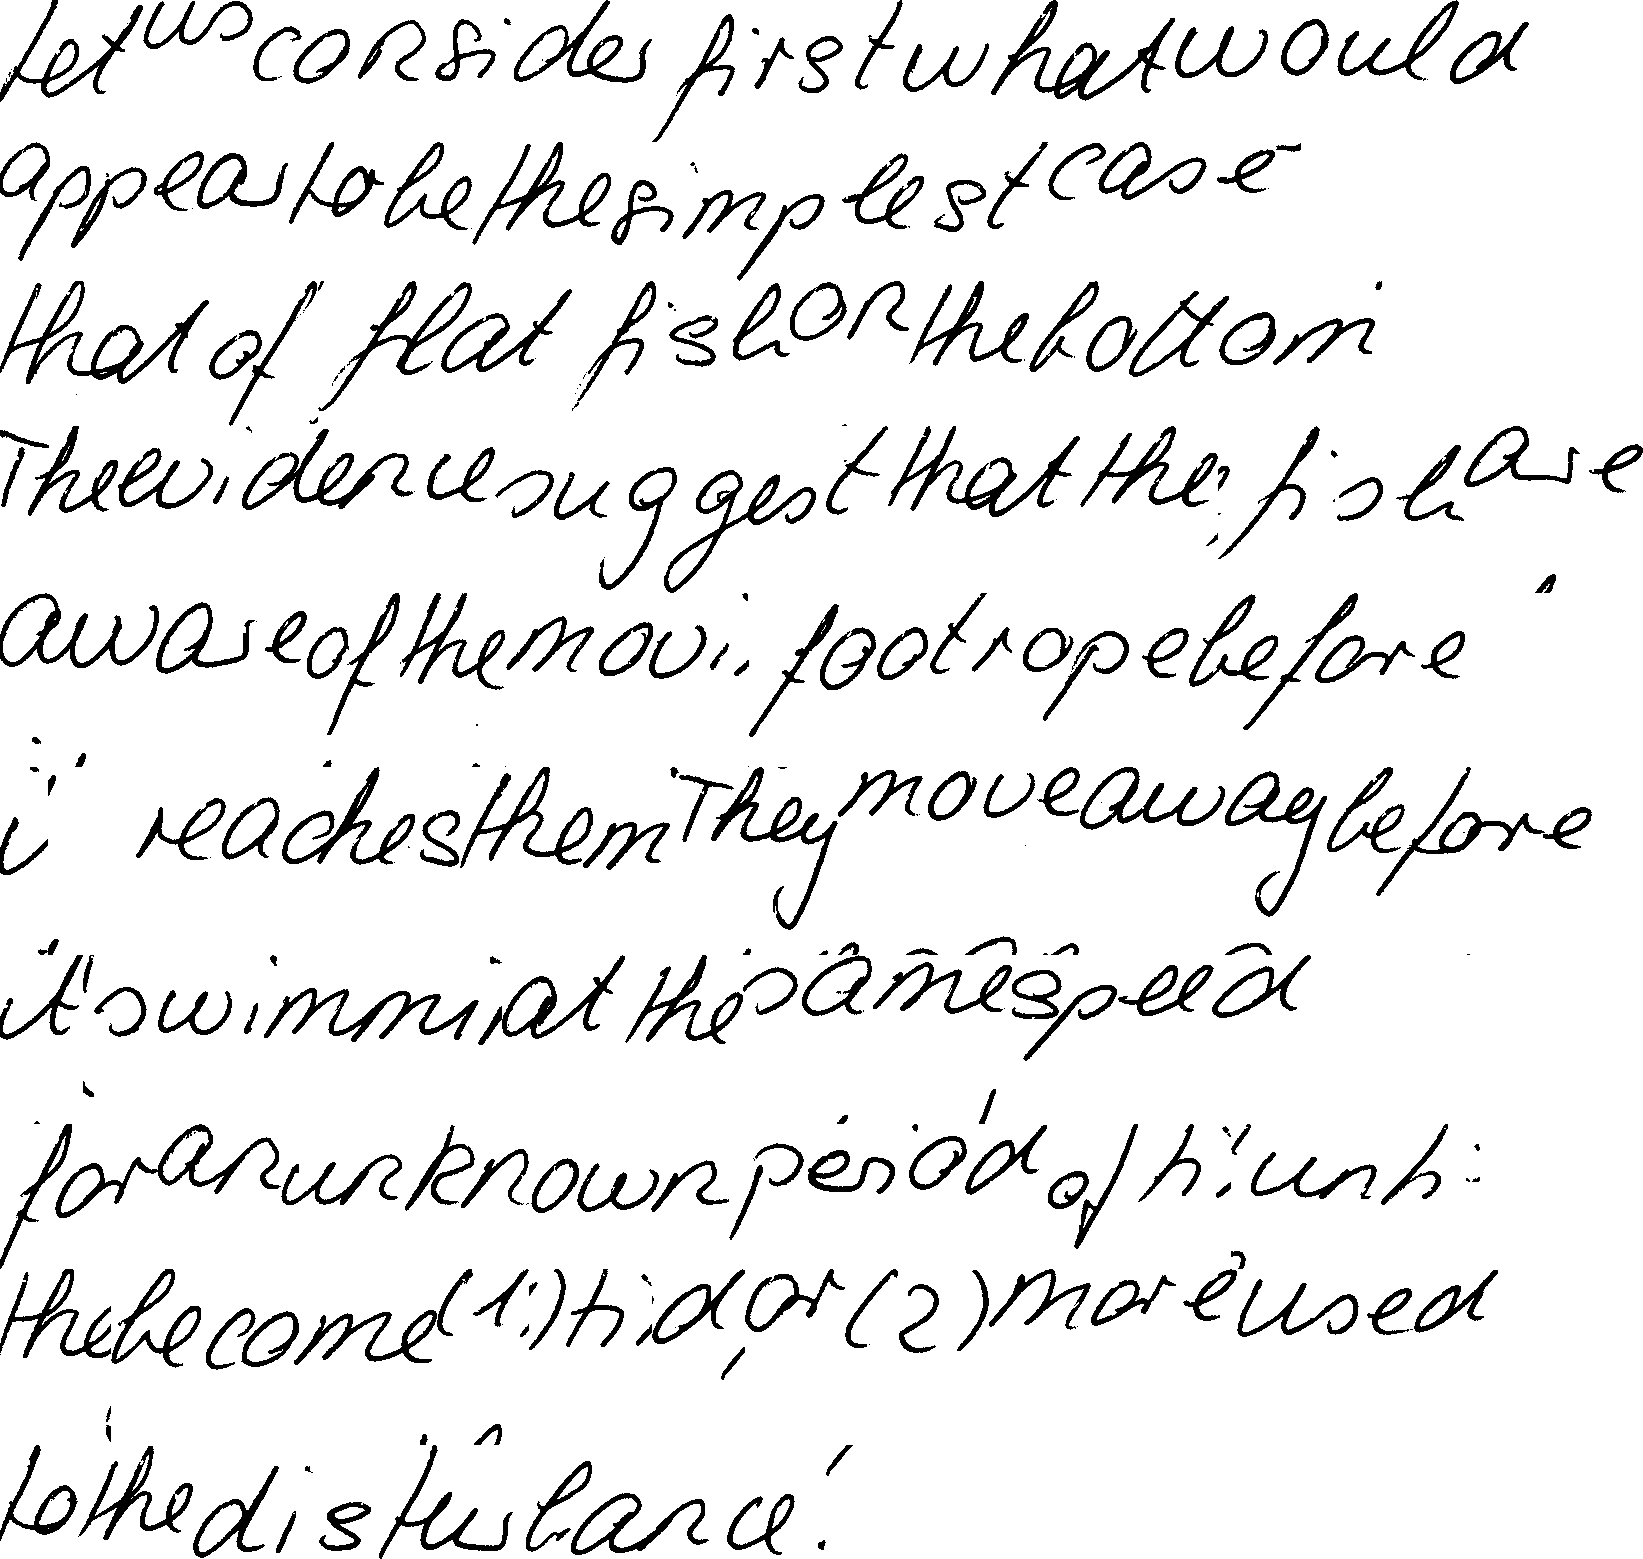 Let us consider first what would
appear to be the simplest case
that of flat fish on the bottom
The evidence suggest that the fish are
aware of the movi footrope before
reaches them They move away before
it swimmi at the same speed
for an unknown period of
the become (1) or (2) more used
to the disturbance.